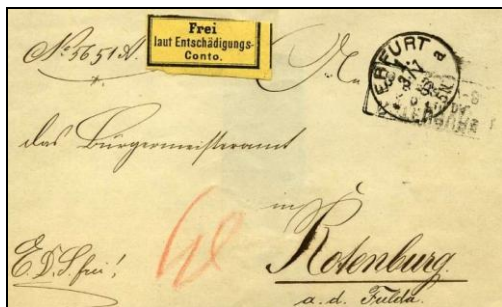 Frei
laut Entschädigungs-
Conto.
No. 5651 A.
An
ERFURT
das Bürgermeisteramt
in
E.D.S. frei!
Rotenburg.
a. d. Fulda.